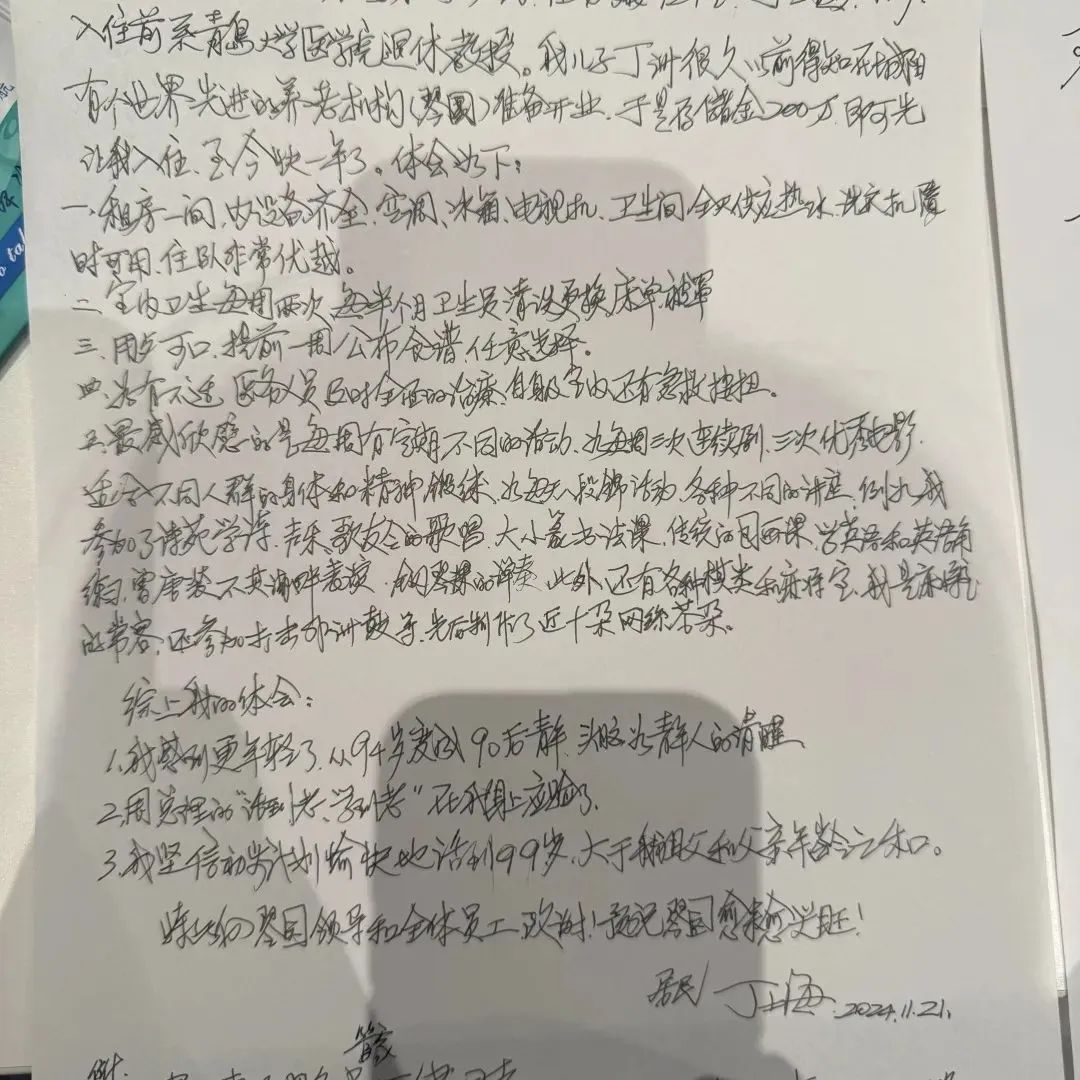 入住前系青岛大学医学院退休教授。我儿子丁洲很久以前得知在城阳
有个世界先进的养老机构(琴园)准备开业,于是存储金200万即可先
让我入住,至今快一年了。体会如下:
一、租房一间,内设备齐全,空调、冰箱、电视机、卫生间全天供应热水,洗衣机随
时可用,住卧非常优越。
二、室内卫生每周两次,每半个月卫生员清洗更换床单被罩
三、用餐可口,提前一周公布食谱,任意选择。
四、如有不适,医务人员及时全面的治疗,自身及室内还有急救按扭。
五、最感欣慰的是每周有定期不同的活动,如每周三次连续剧,三次优秀电影,
适合不同人群的身体和精神锻练,如每天八段锦活动,各种不同的讲座,例如我
参加了诗苑学诗,声乐、歌友会的歌唱,大小篆书法课,传统的国画课,学英语和英语角
练习,曾唐装 表演,钢琴课的弹奏,此外,还有各种棋类和麻将室,我是麻将
的常客,还参加打击非洲鼓等,先后制作了近十朵网丝花朵。
综上我的体会:
1.我感到更年轻了,从94岁变成90后青年,头脑如青年人的清醒
2.周总理的“活到老、学到老”在我身上应验了。
3.我坚信初步计划愉快地活到99岁,大于我祖父和父亲年龄之和。
琴园领导和全体员工致谢!预祝琴园愈来愈兴旺!
居民 丁海 2024.11.21.
管家
附: